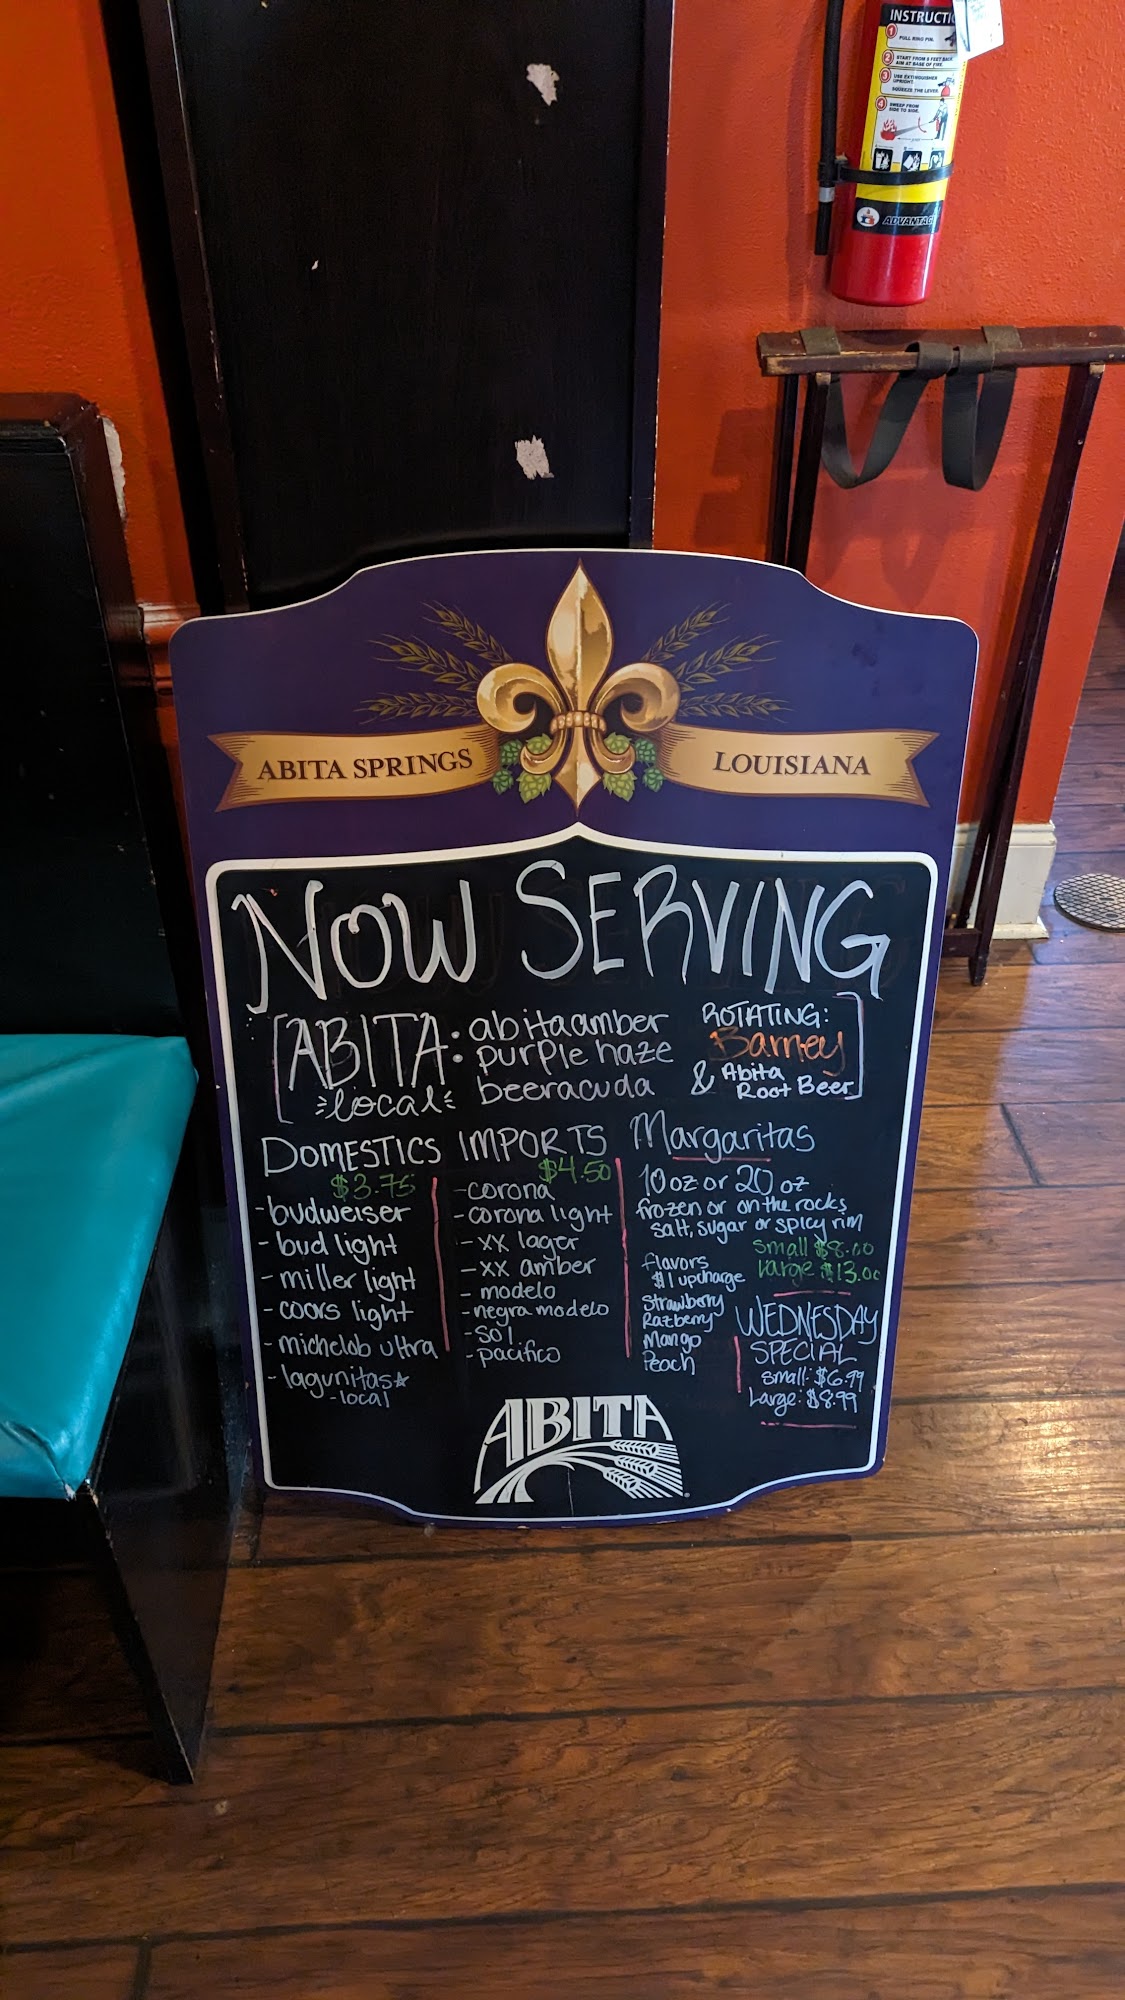 INSTRUCTI
1 PULL RING PIN.
2 START FROM 8 FEET BACK
AIM AT BASE OF FIRE.
3 USE EXTINGUISHER
UPRIGHT
SQUEEZE THE LEVER
4 SWEEP FROM
SIDE TO SIDE.
ADVANTAG
ABITA SPRINGS
LOUISIANA
NOW SERVING
[ABITA:
local
abita amber
purple haze
beeracuda
ROTATING:
Barney
& Abita
Root Beer]
DOMESTICS
$3.75
- budweiser
- bud light
- miller light
- coors light
- michelob ultra
- lagunitas☆
- local
IMPORTS
$4.50
- corona
- corona light
- xx lager
- xx amber
- modelo
- negra modelo
- sol
- pacifico
Margaritas
10 oz or 20 oz
frozen or on the rocks
salt, sugar or spicy rim
Small $8.00
Large $13.00
flavors
$1 upcharge
Strawberry
Razberry
Mango
Peach
WEDNESDAY
SPECIAL
Small: $6.99
Large: $8.99
ABITA